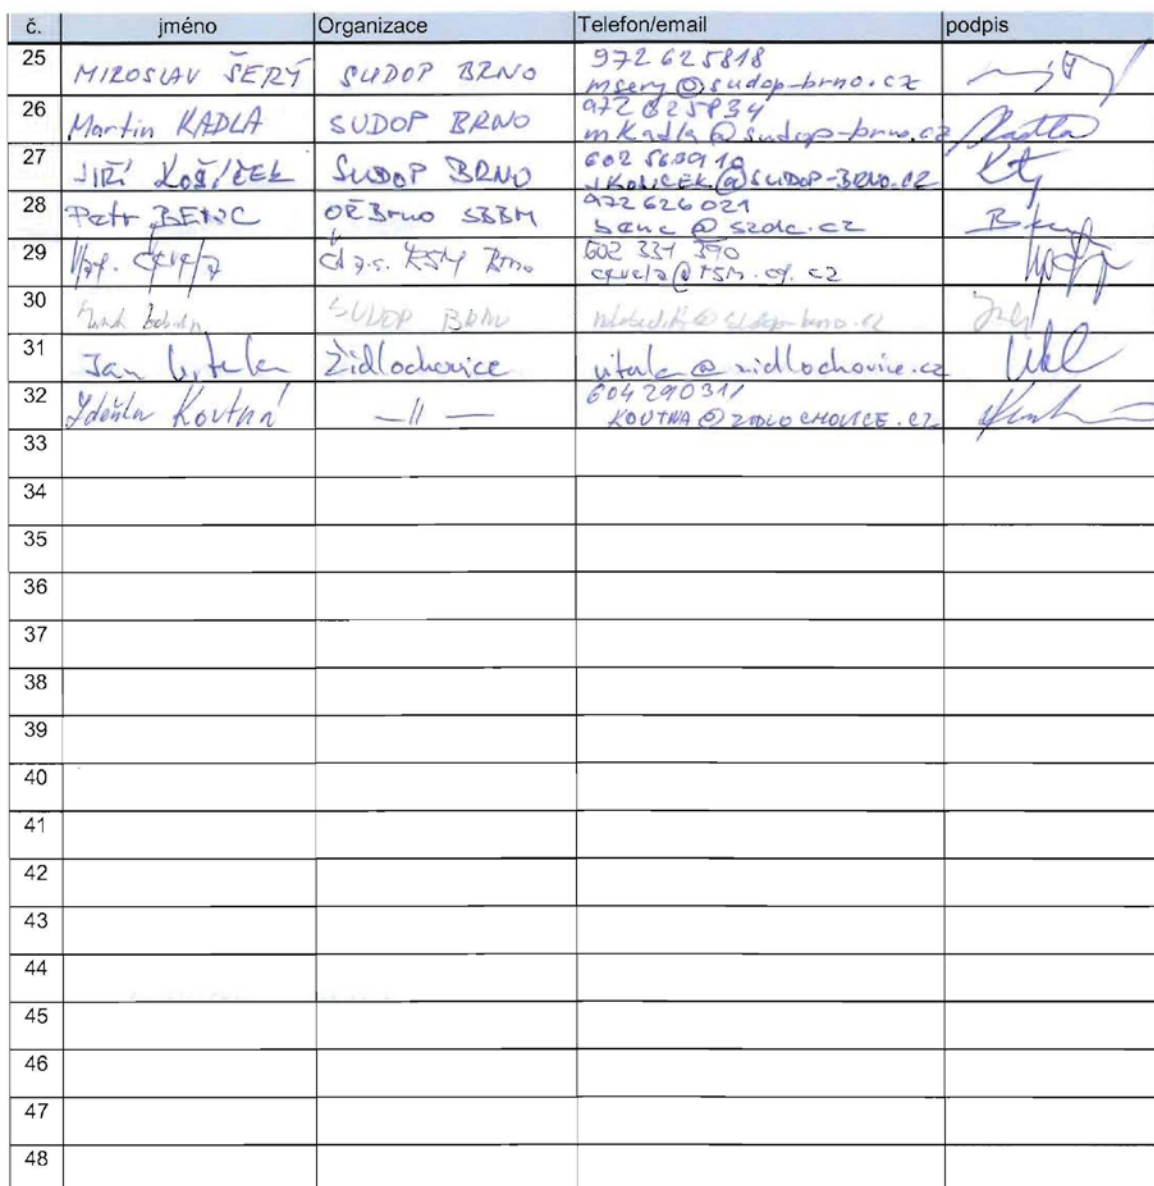 č. jméno Organizace Telefon/email podpis
25 MIROSLAV ŠERÝ SUDOP BRNO 972 625818
msery@sudop-brno.cz
26 Martin KADLA SUDOP BRNO 972 625834
mkadla@sudop-brno.cz Kadla
27 JIŘÍ KOŠÍČEK SUDOP BRNO 602
JKOSICEK@SUDOP-BRNO.CZ
28 Petr BENC OŘ Brno SBBH 972 626 021
benc@szdc.cz
29 ČD a.s. RSM Brno 602 331 390
30 SUDOP BRNO
31 Jan Vitula Židlochovice vitula@zidlochovice.cz
32 Zdeňka Koutná —||— 604 290311
KOUTNA@ZIDLOCHOVICE.CZ
33
34
35
36
37
38
39
40
41
42
43
44
45
46
47
48